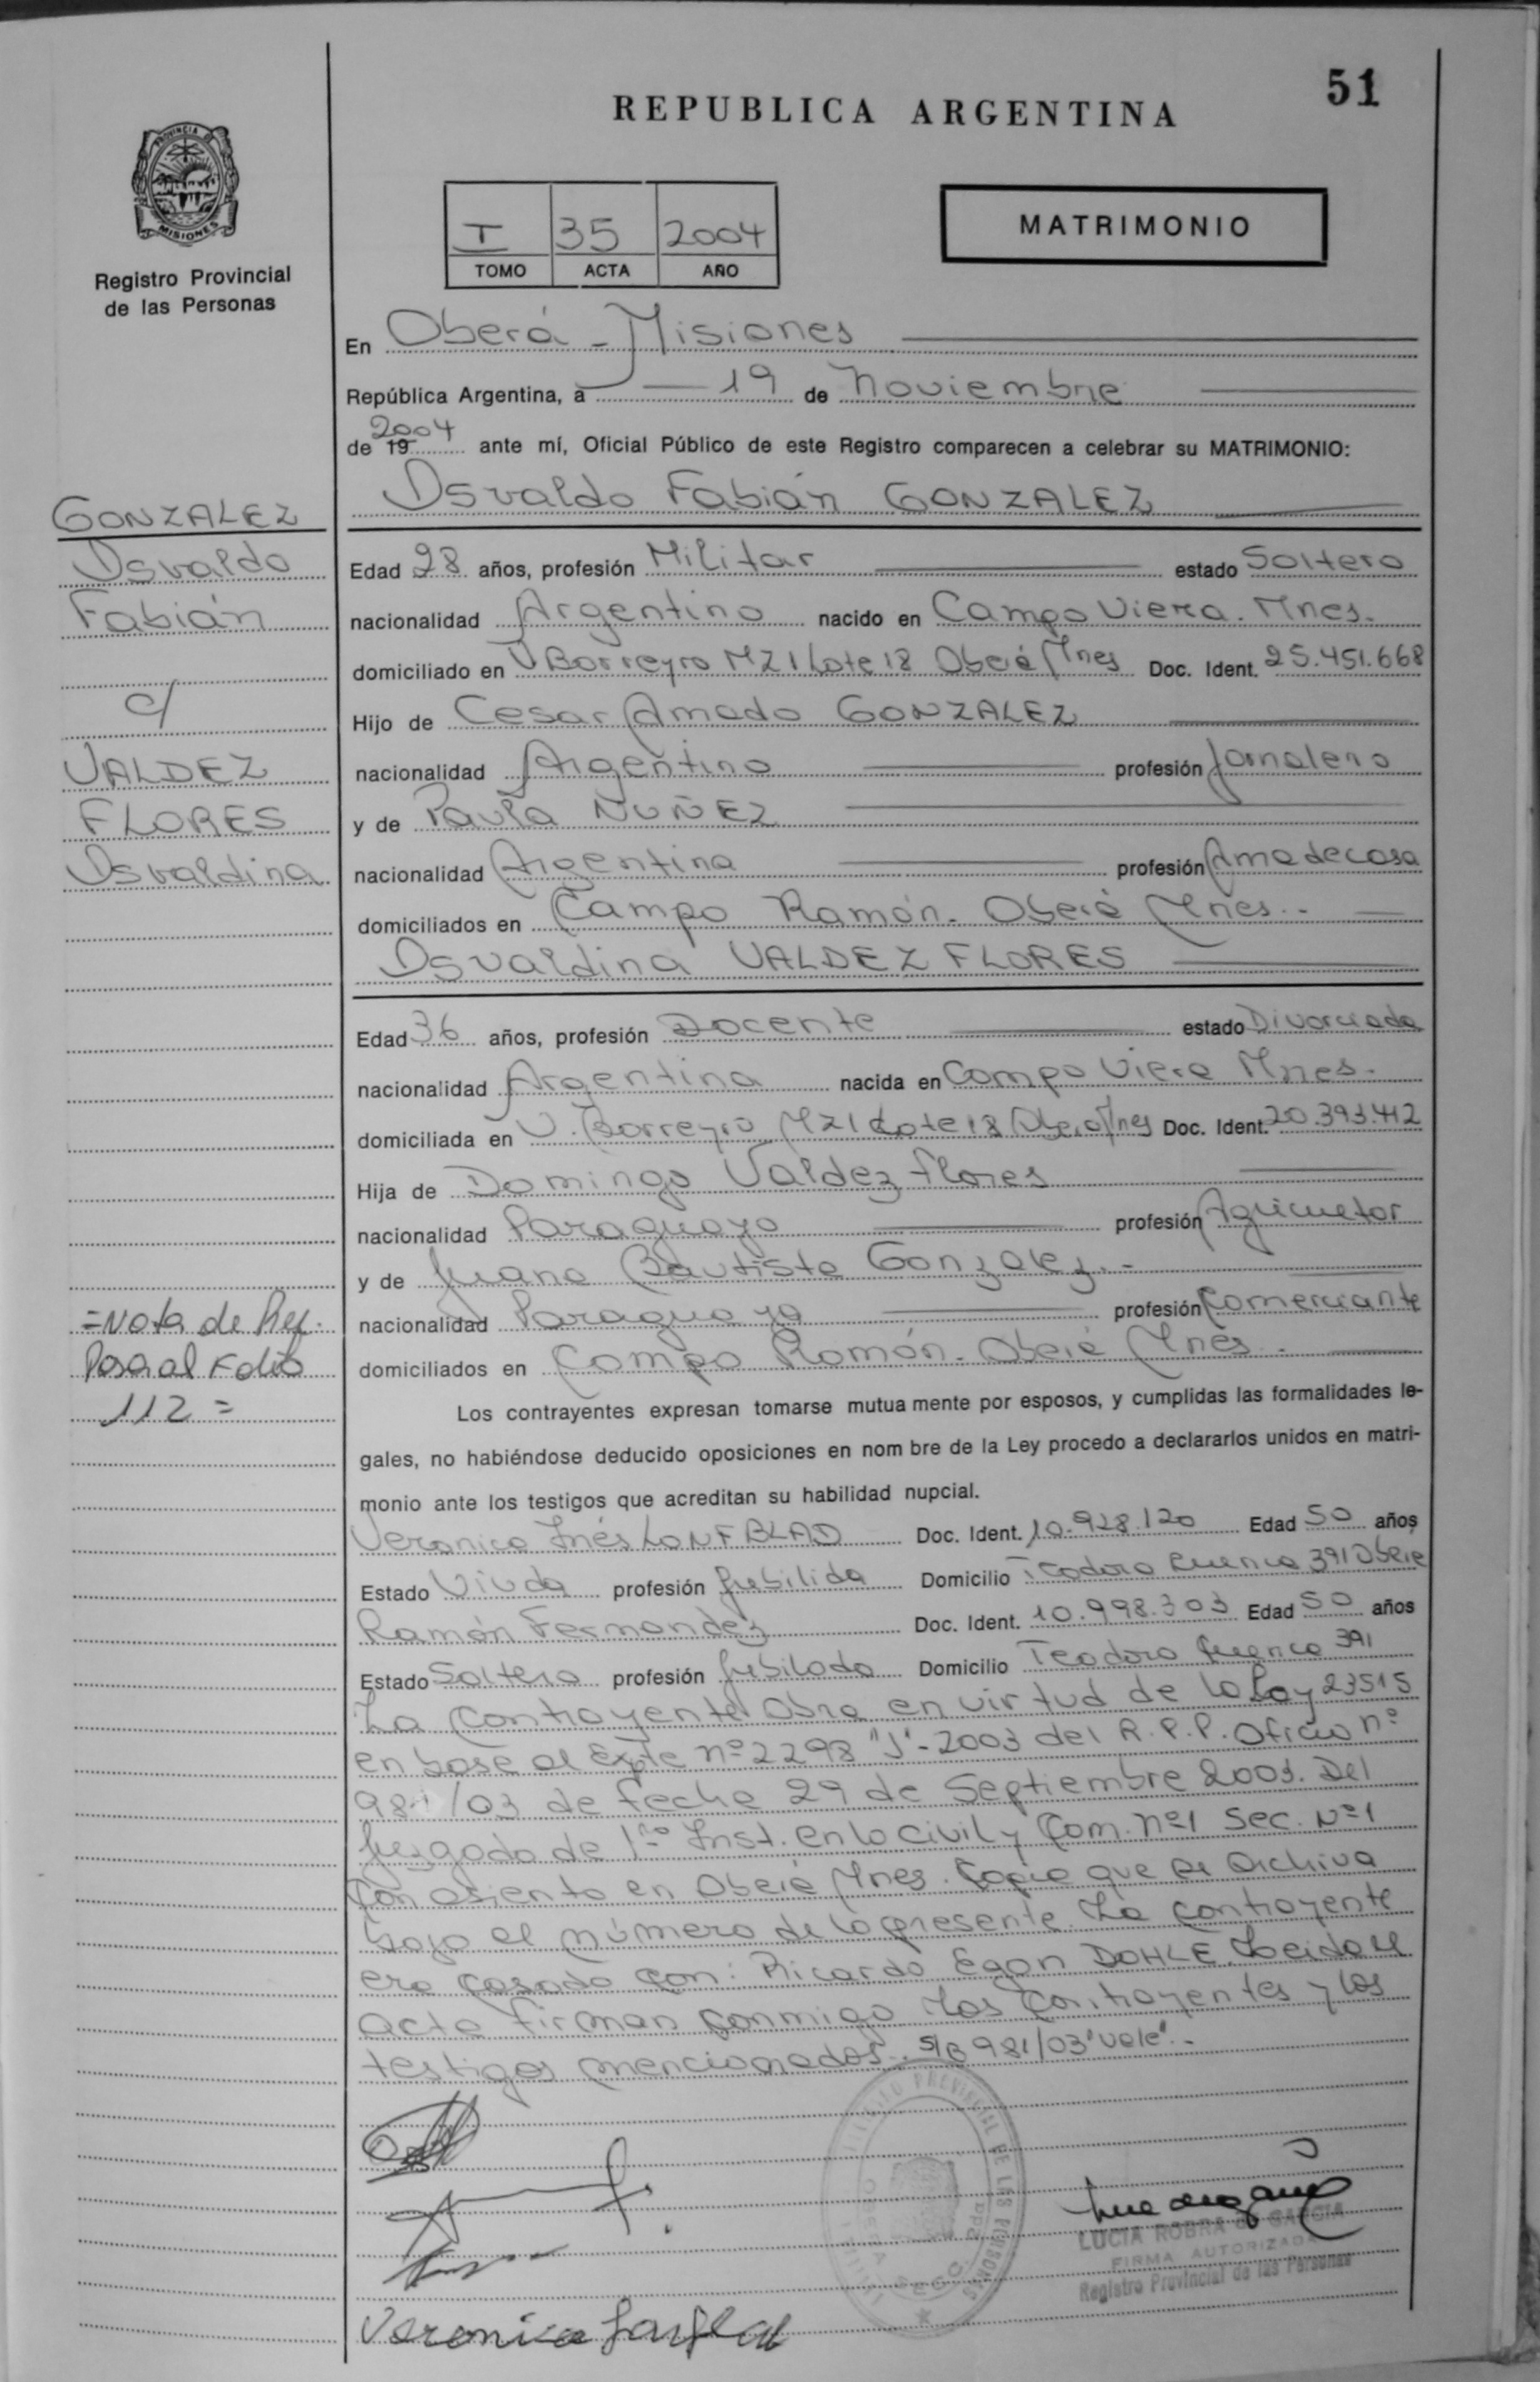 51
REPUBLICA ARGENTINA
PROVINCIA DE
MISIONES
Registro Provincial
de las Personas
I 35 2004
TOMO ACTA AÑO
MATRIMONIO
En Oberá - Misiones
República Argentina, a 19 de Noviembre
de 19 2004 ante mí, Oficial Público de este Registro comparecen a celebrar su MATRIMONIO:
Osvaldo Fabián GONZALEZ
GONZALEZ
Osvaldo
Fabián
c/
VALDEZ
FLORES
Osvaldina
Edad 28 años, profesión Militar estado Soltero
nacionalidad Argentino nacido en Campo Viera. Mnes.
domiciliado en V Borreyro MZ 1 Lote 18 Oberá Mnes Doc. Ident. 25.451.668
Hijo de Cesar Amado GONZALEZ
nacionalidad Argentino profesión Jornalero
y de Paula NUÑEZ
nacionalidad Argentina profesión Ama de casa
domiciliados en Campo Ramón - Oberá Mnes.-
Osvaldina VALDEZ FLORES
Edad 36 años, profesión Docente estado Divorciada
nacionalidad Argentina nacida en Campo Viera Mnes.
domiciliada en V. Borreyro MZ 1 Lote 18 Oberá Mnes Doc. Ident. 20.393.412
Hija de Domingo Valdez Flores
nacionalidad Paraguayo profesión Agricultor
y de Juana Bautista Gonzalez.-
nacionalidad Paraguaya profesión Comerciante
domiciliados en Campo Ramón - Oberá Mnes.
=Nota de Ref.
Pasa al Folio
112 =
Los contrayentes expresan tomarse mutua mente por esposos, y cumplidas las formalidades le-
gales, no habiéndose deducido oposiciones en nom bre de la Ley procedo a declararlos unidos en matri-
monio ante los testigos que acreditan su habilidad nupcial.
Veronica Inés LONFBLAD Doc. Ident. 10.928.120 Edad 50 años
Estado Viuda profesión Jubilida Domicilio Teodoro Cuenca 391 Oberá
Ramón Fernandez Doc. Ident. 10.998.303 Edad 50 años
Estado Soltero profesión Jubilado Domicilio Teodoro Cuenca 391
La Contrayente Obra en virtud de la Ley 23515
en base al Expte nº 2298 "J"-2003 del R.P.P. Oficio nº
981/03 de fecha 29 de Septiembre 2003. Del
Juzgado de 1ra Inst. en lo Civil y Com. nº1 Sec. Nº1
Con asiento en Oberá Mnes. Copia que se archiva
bajo el número de la presente. La contrayente
era casada con: Ricardo Egon DOHLE. Leida el
acta firman conmigo los contrayentes y los
testigos mencionados. S/B 981/03 "Vale".-
Veronica
LUCIA ROBRA de GARCIA
FIRMA AUTORIZADA
Registro Provincial de las Personas